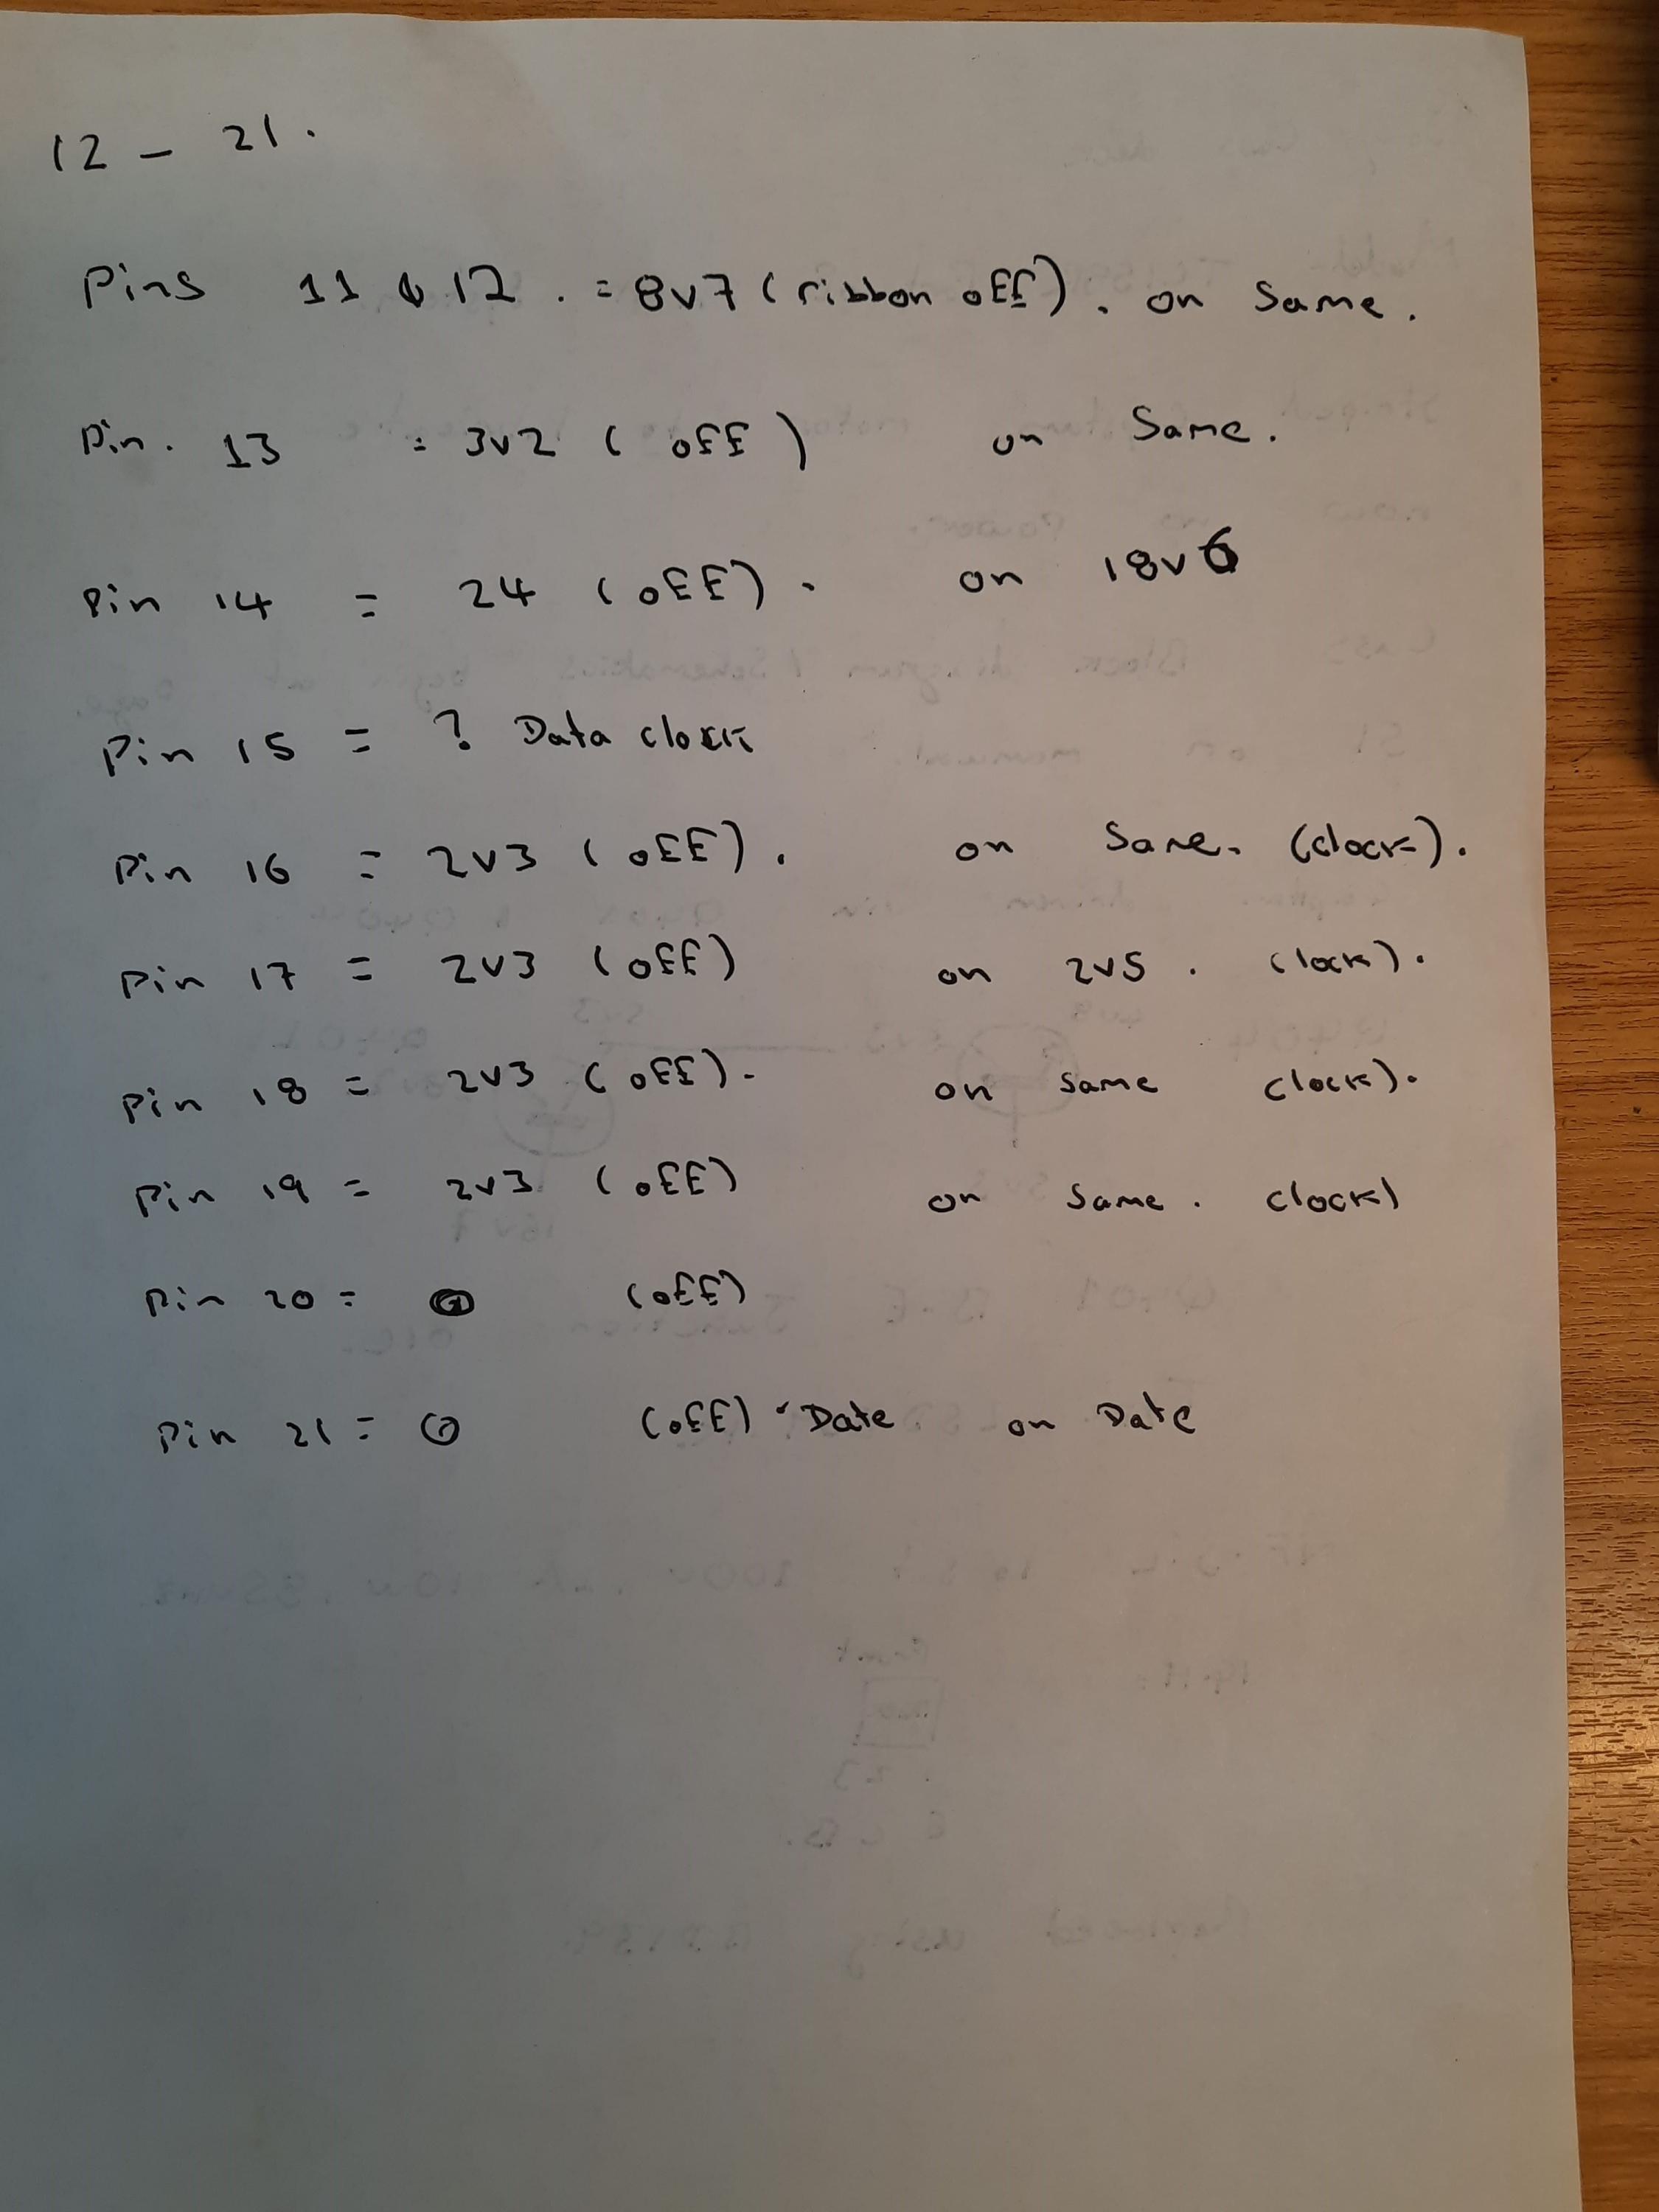 12 - 21.
Pins 11 & 12 . = 8v7 (ribbon off). on Same.
Pin. 13 = 3v2 (off) on Same.
Pin 14 = 24 (off). on 18v6
Pin 15 = ? Data clock
Pin 16 = 2v3 (off). on Same. (clock).
Pin 17 = 2v3 (off) on 2v5 . clock).
Pin 18 = 2v3 (off). on same clock).
Pin 19 = 2v3 (off) on same. clock)
Pin 20 = (off)
Pin 21 = 0 (off) Date on Date